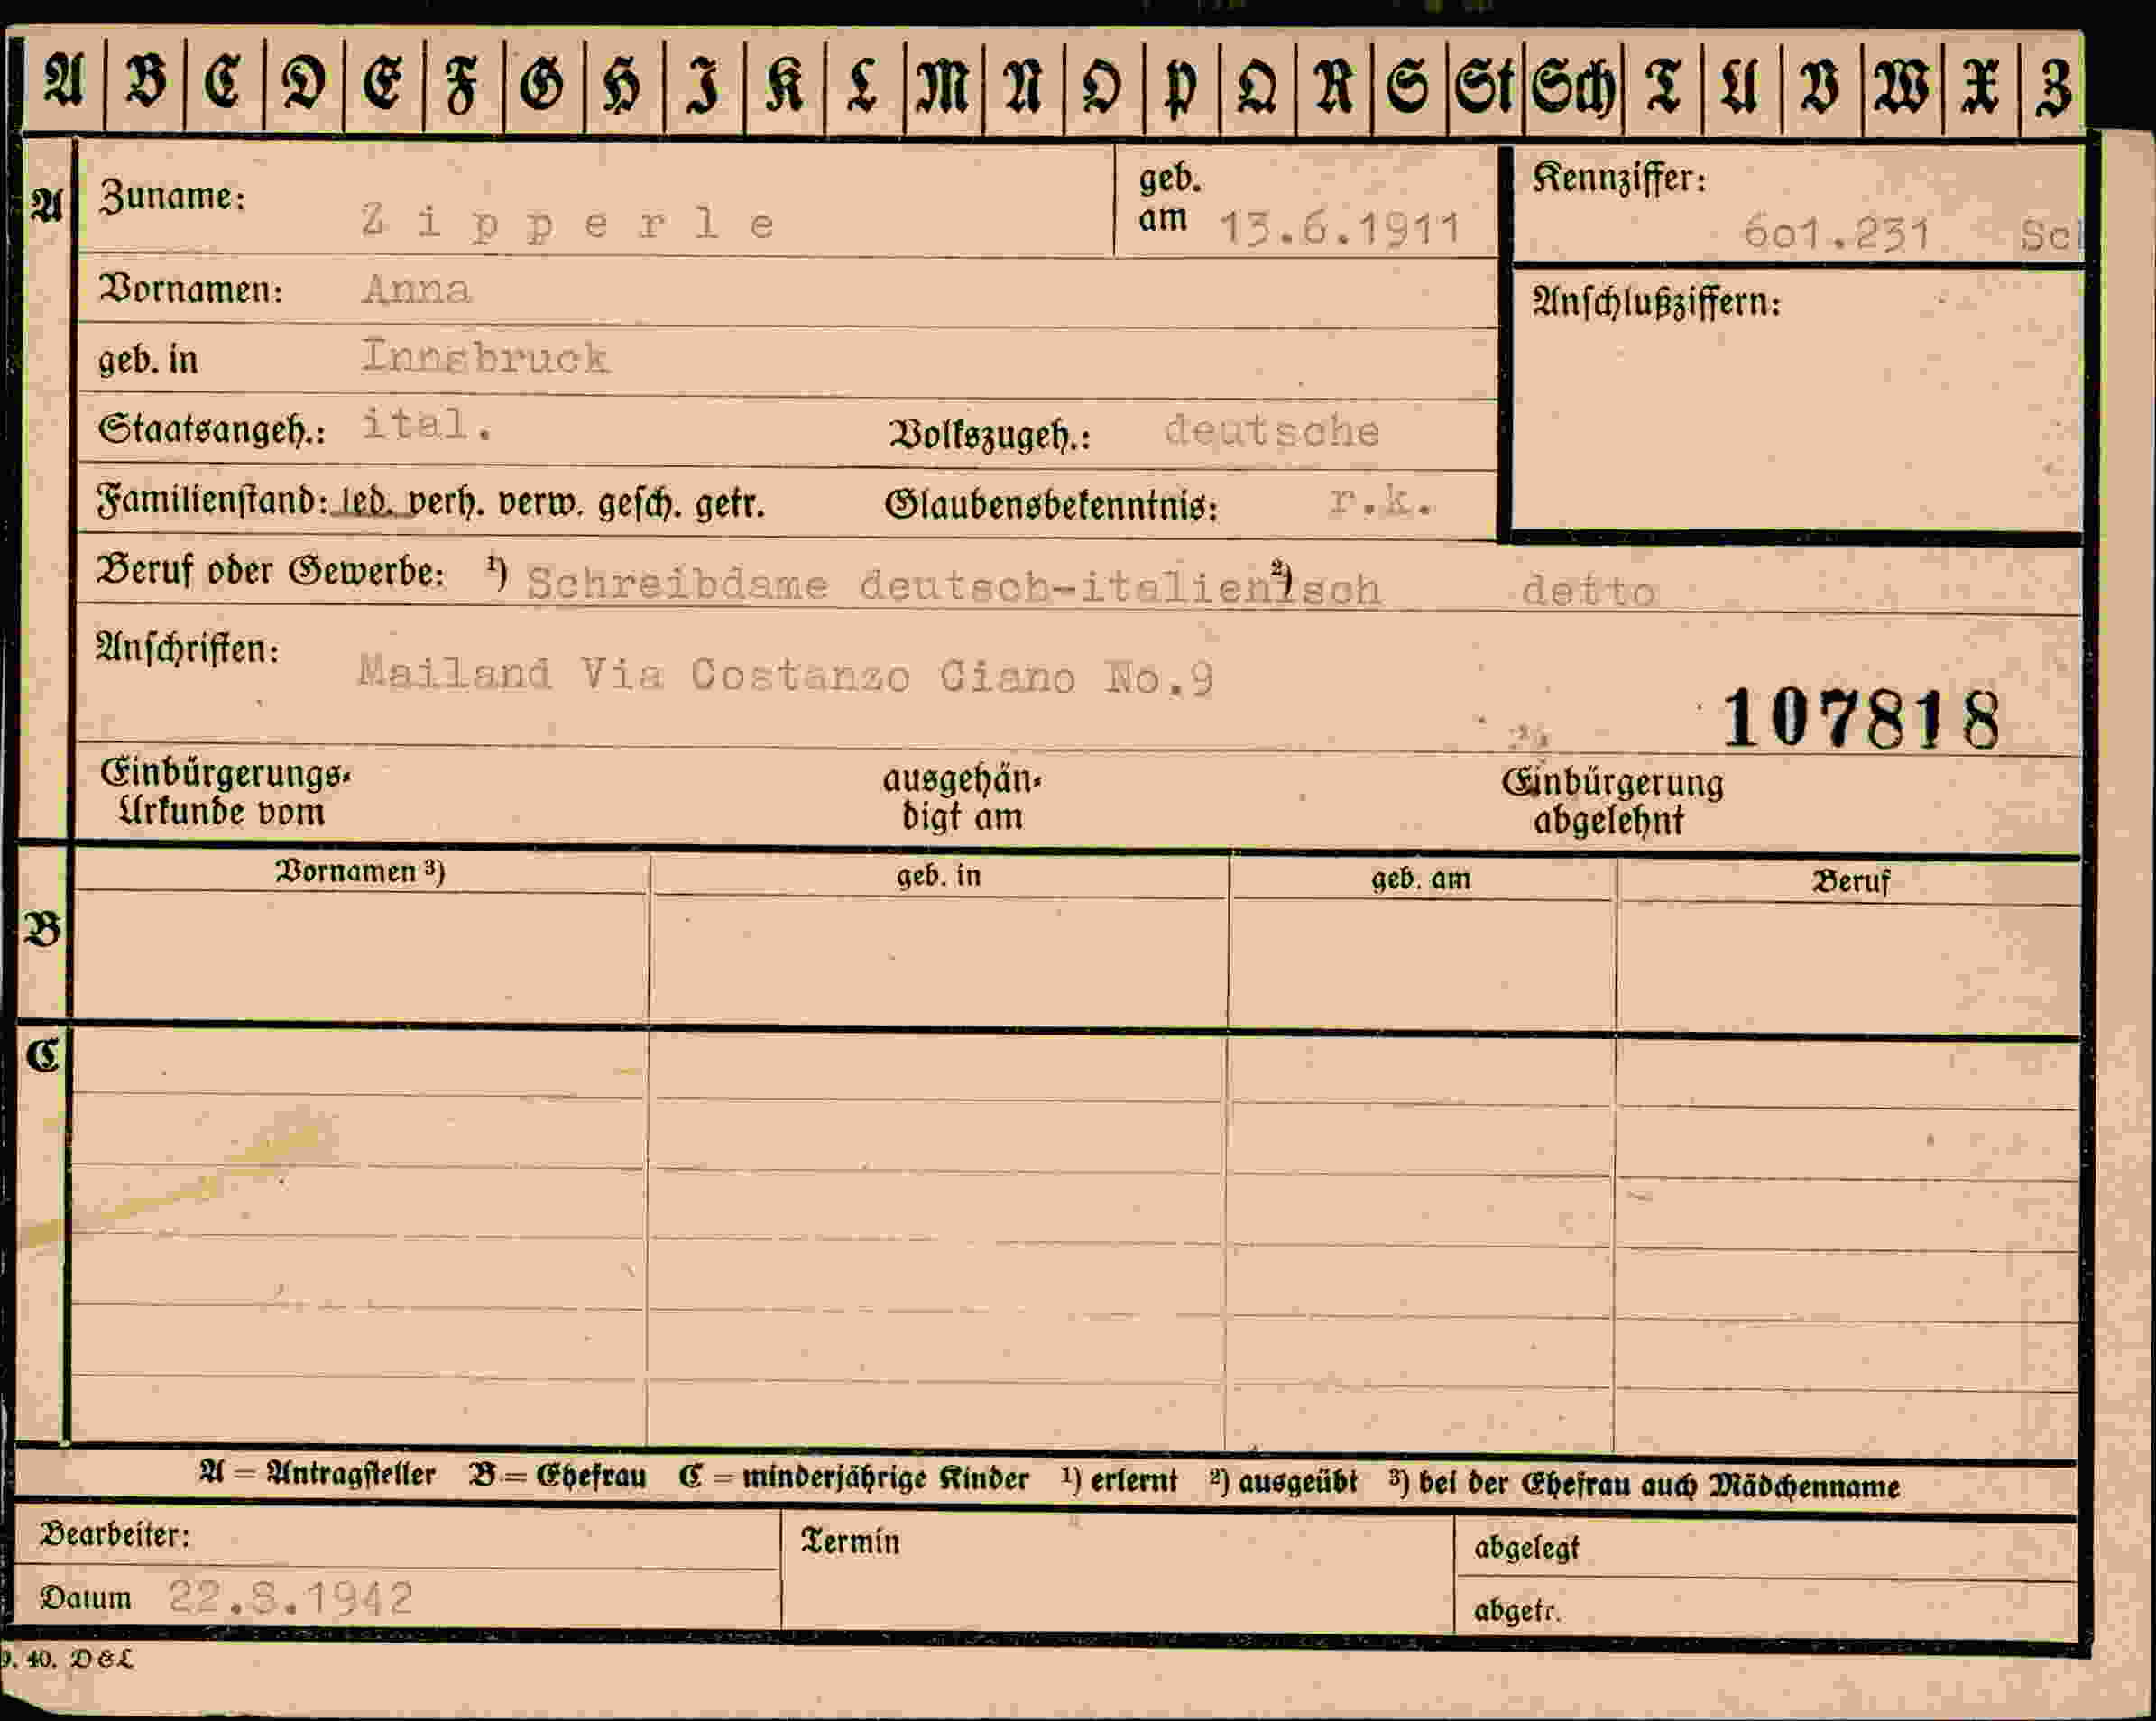 A B C D E F G H I K L M N O P Q R S St Sch T U V W X Z
A Zuname: Zipperle geb. am 13.6.1911 Kennziffer: 601.231 Sch
Vornamen: Anna Anschlußziffern:
geb. in Innsbruck
Staatsangeh.: ital. Volkszugeh.: deutsche
Familienstand: led. verh. verw. gesch. getr. Glaubensbekenntnis: r.k.
Beruf oder Gewerbe: ¹) Schreibdame deutsch-italienisch ²) detto
Anschriften: Mailand Via Costanzo Ciano No.9
107818
Einbürgerungs- ausgehän- Einbürgerung
Urkunde vom digt am abgelehnt
Vornamen ³) geb. in geb. am Beruf
B
C
A = Antragsteller B = Ehefrau C = minderjährige Kinder ¹) erlernt ²) ausgeübt ³) bei der Ehefrau auch Mädchenname
Bearbeiter: Termin abgelegt
Datum 22.8.1942 abgetr.
9. 40. D&L